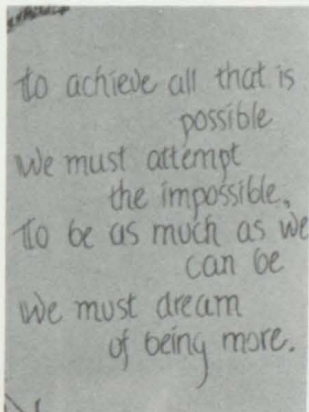 To achieve all that is
possible
We must attempt
the impossible,
To be as much as we
can be
We must dream
of being more.